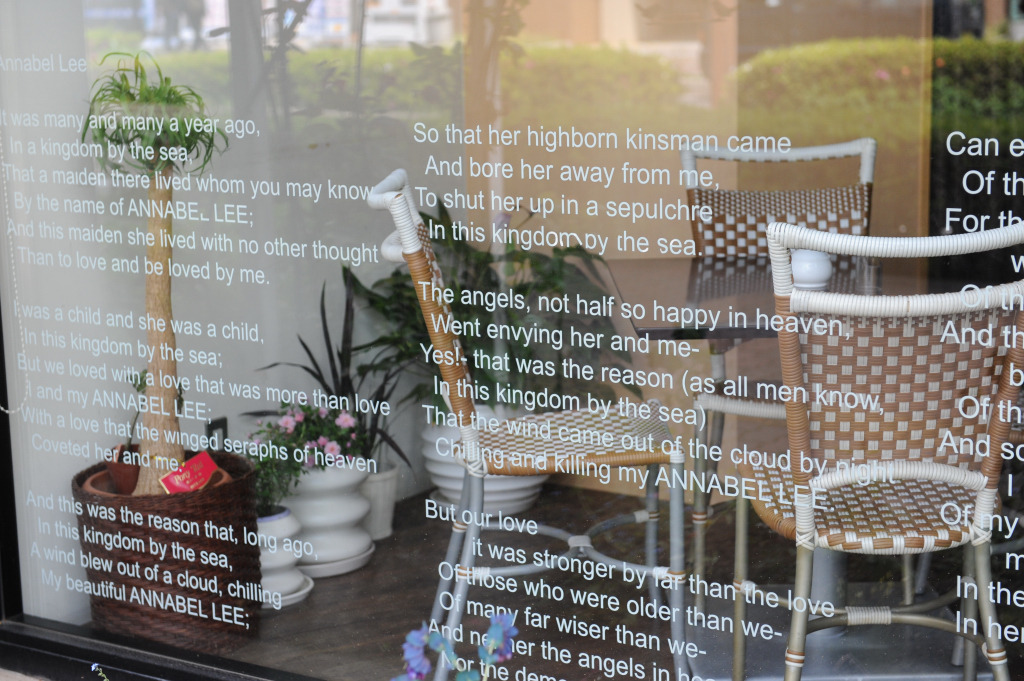 Annabel Lee
t was many and many a year ago,
In a kingdom by the sea,
That a maiden there lived whom you may know
By the name of ANNABEL LEE;
And this maiden she lived with no other thought
Than to love and be loved by me.
was a child and she was a child,
In this kingdom by the sea;
But we loved with a love that was more than love
I and my ANNABEL LEE;
With a love that the winged seraphs of heaven
Coveted her and me.
And this was the reason that, long ago,
In this kingdom by the sea,
A wind blew out of a cloud, chilling
My beautiful ANNABEL LEE;
So that her highborn kinsman came
And bore her away from me,
To shut her up in a sepulchre
In this kingdom by the sea.
The angels, not half so happy in heaven,
Went envying her and me-
Yes!- that was the reason (as all men know,
In this kingdom by the sea)
That the wind came out of the cloud by night
Chilling and killing my ANNABEL LEE
But our love
it was stronger by far than the love
Of those who were older than we-
Of many far wiser than we-
And neither the angels in
Nor the
Can e
Of th
For th
w
Of th
And th
b
Of th
And so
I
Of my
m
In the
In her